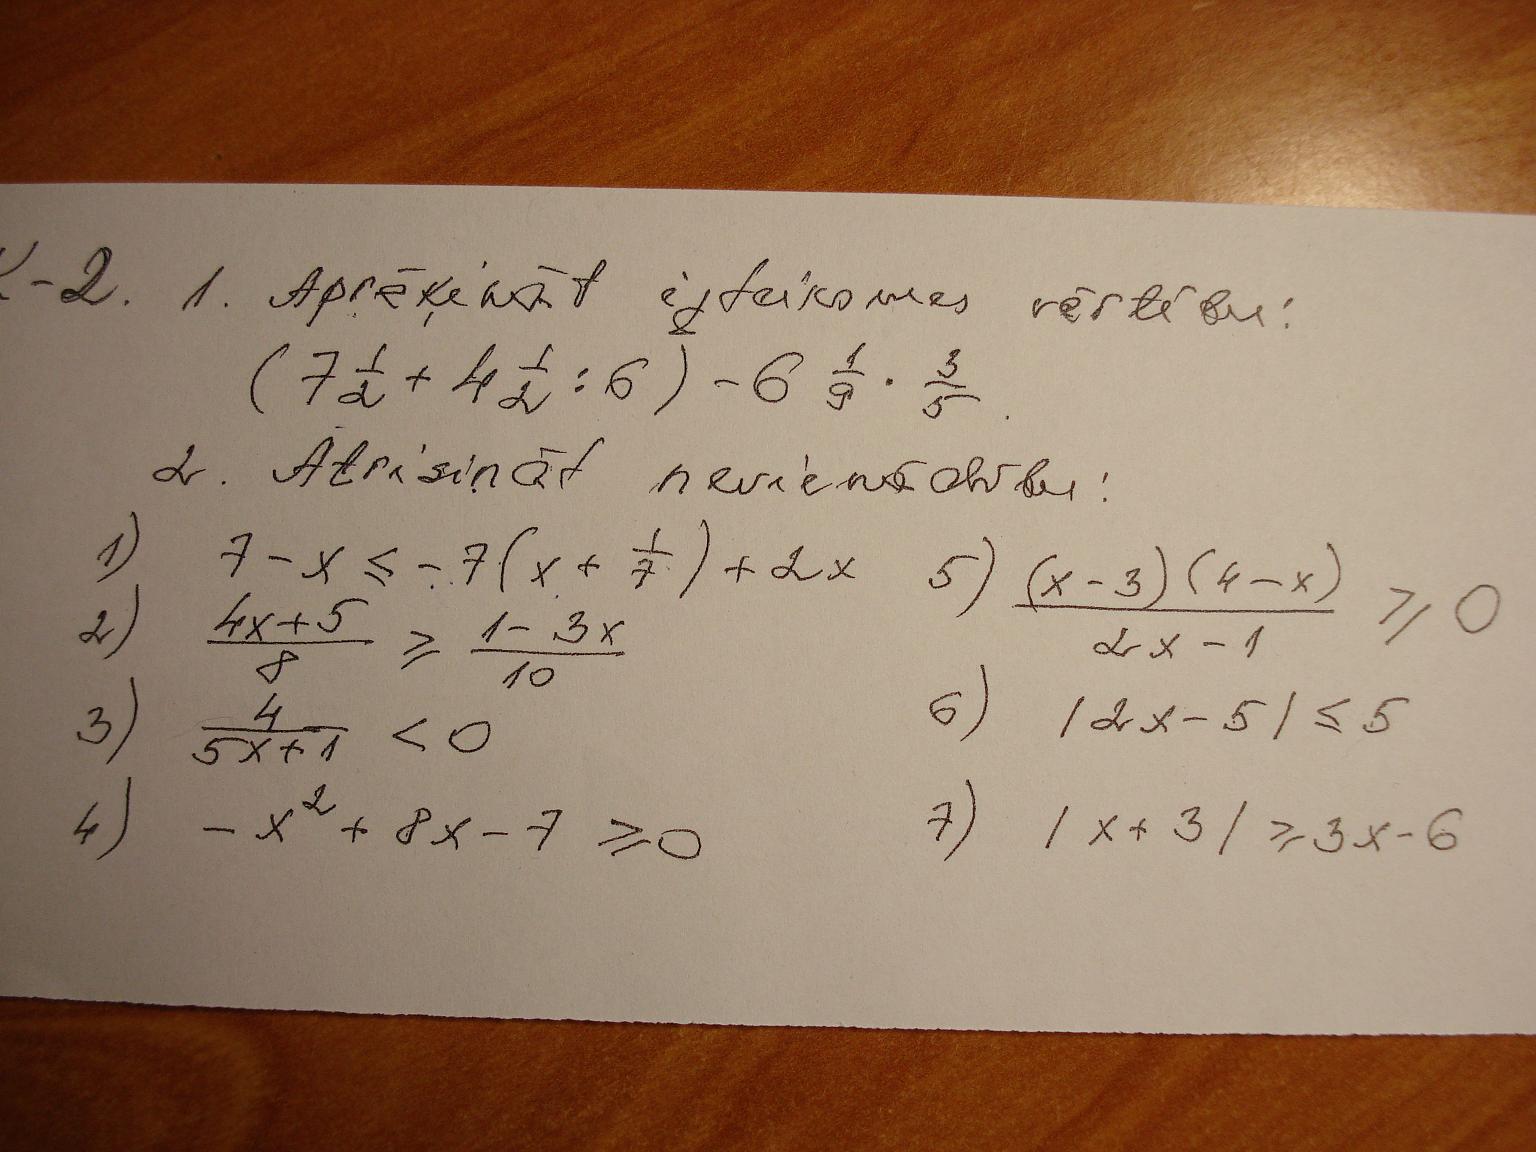 K-2. 1. Aprēķināt izteiksmes vērtību:
(7 1/2 + 4 1/2 : 6) - 6 1/9 · 3/5.
2. Atrisināt nevienādību:
1) 7 - x ≤ -7(x + 1/7) + 2x
2) (4x+5)/8 ≥ (1-3x)/10
3) 4/(5x+1) < 0
4) -x² + 8x - 7 ≥ 0
5) (x-3)(4-x)/(2x-1) ≥ 0
6) |2x-5| ≤ 5
7) |x+3| ≥ 3x-6